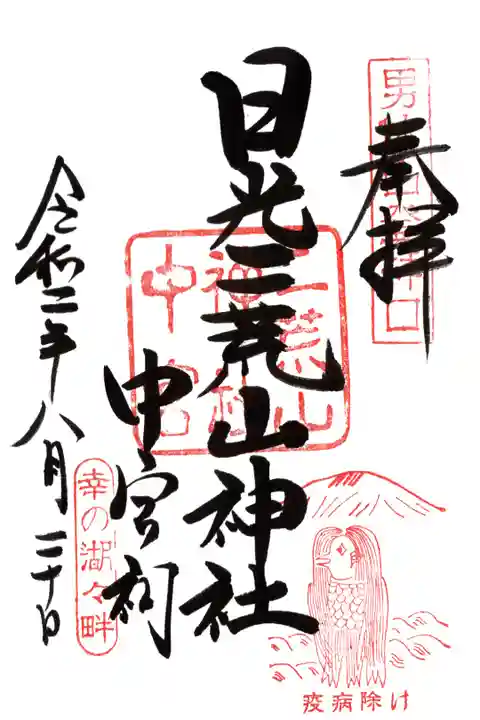 奉拝
男体山登拝口
日光二荒山神社
中宮祠
二荒山
神社
中宮
令和二年八月二十日
幸の湖々畔
疫病除け